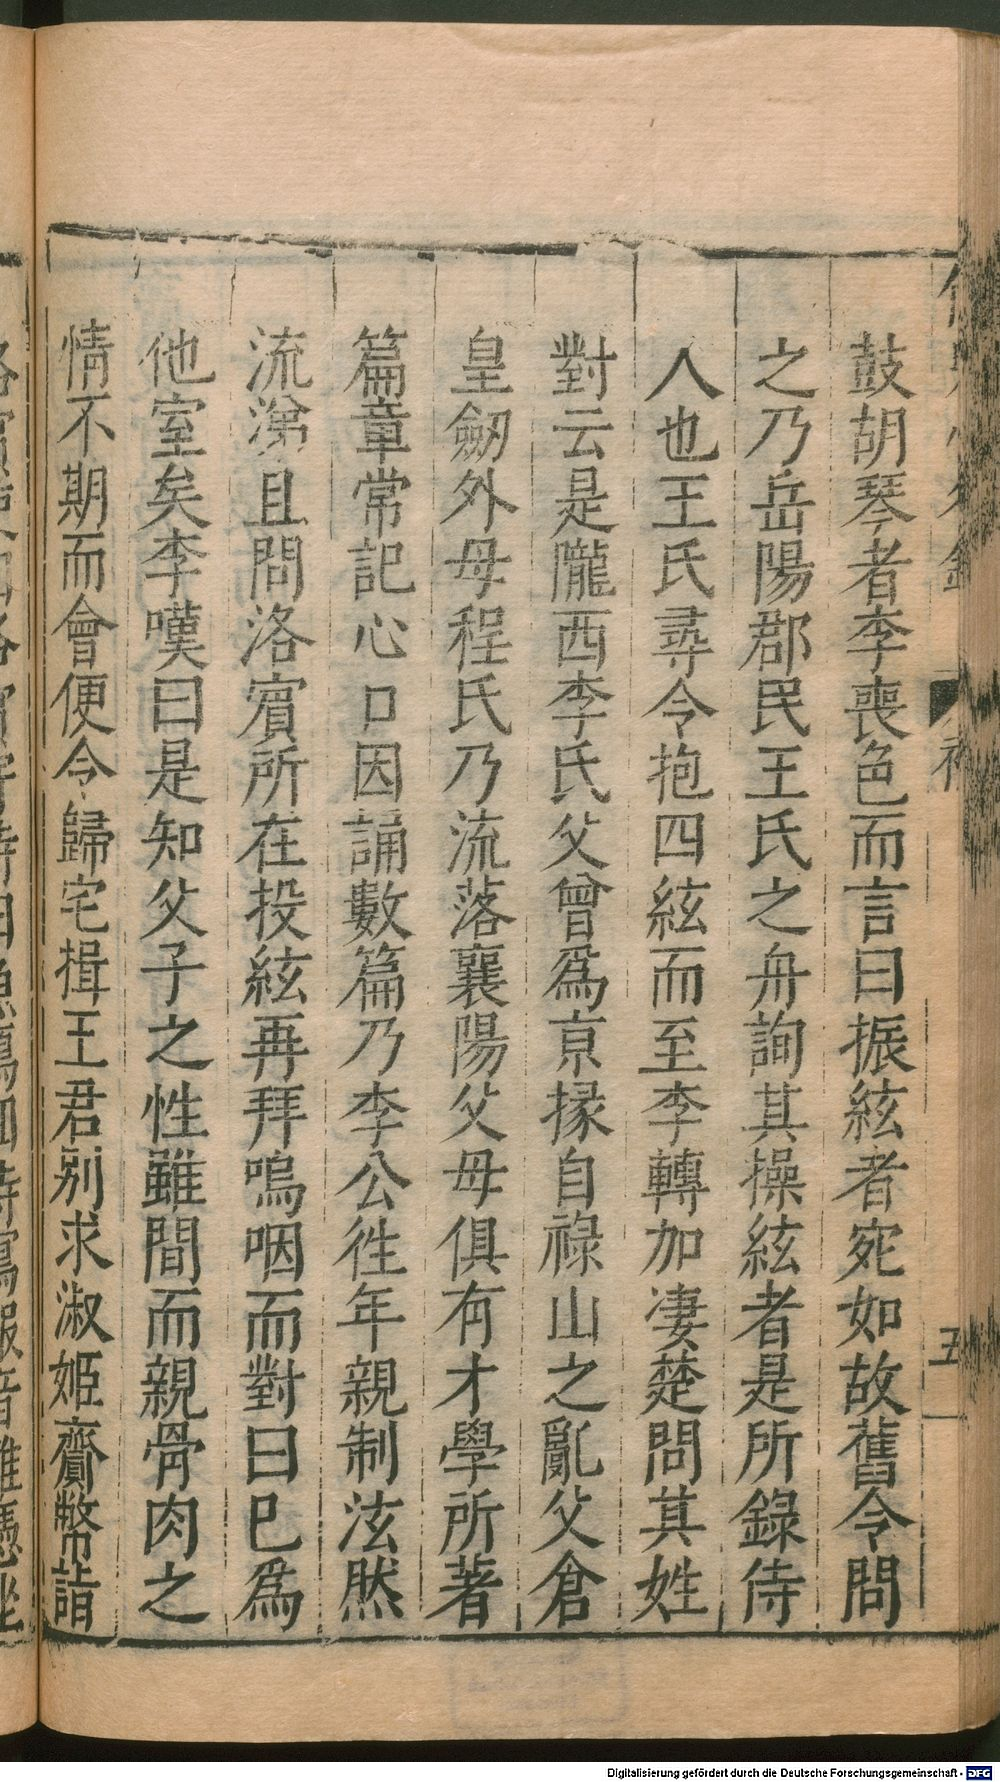 鼓胡琴者李喪色而言曰振絃者宛如故舊令問
之乃岳陽郡民王氏之舟詢其操絃者是所錄侍
人也王氏尋令抱四絃而至李轉加凄楚問其姓
對云是隴西李氏父曾爲京掾自祿山之亂父倉
皇劒外母程氏乃流落襄陽父母俱有才學所著
篇章常記心口因誦數篇乃李公徃年親制泫然
流涕且問洛賓所在投絃再拜嗚咽而對曰已爲
他室矣李嘆曰是知父子之性雖間而親骨肉之
情不期而會便令歸宅揖王君别求淑姬齎幣詣
五
Digitalisierung gefördert durch die Deutsche Forschungsgemeinschaft - DFG